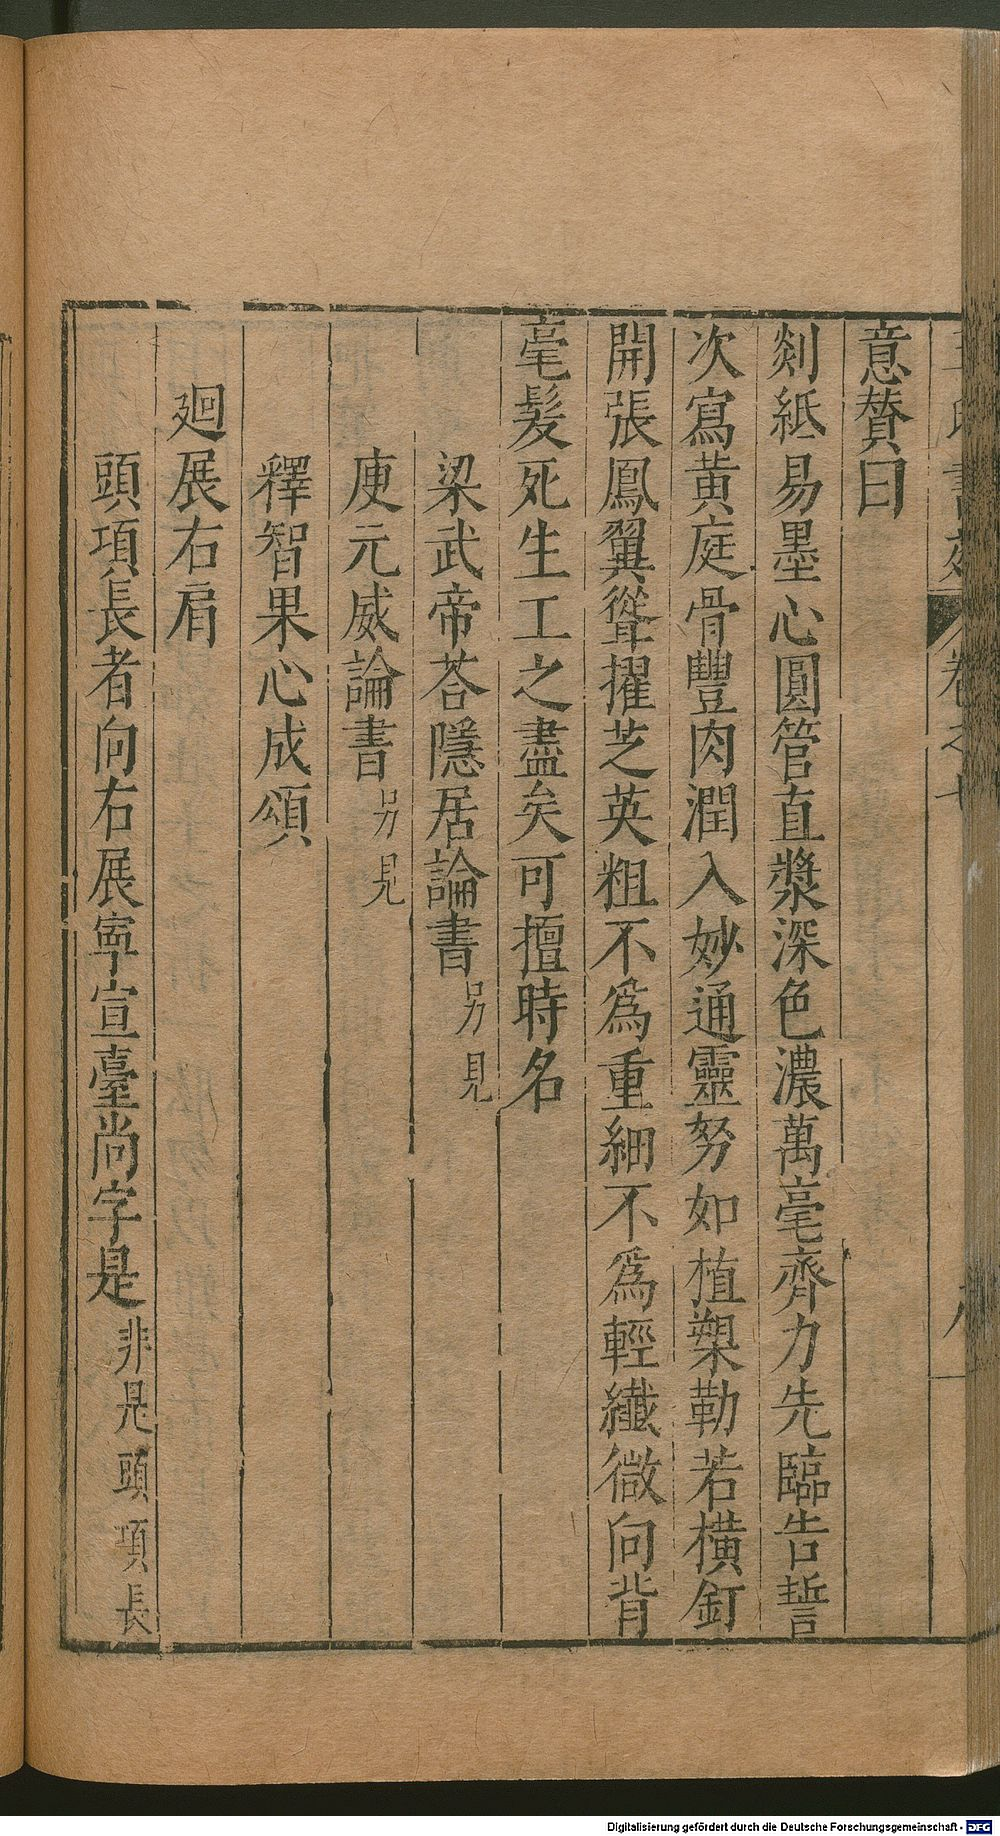 王氏書苑 卷之七 八
意贊曰
剡紙易墨心圓管直漿深色濃萬毫齊力先臨告誓
次寫黃庭骨豐肉潤入妙通靈努如植槊勒若橫釘
開張鳳翼聳擢芝英粗不爲重細不爲輕纖微向背
毫髮死生工之盡矣可擅時名
梁武帝荅隱居論書另見
庾元威論書另見
釋智果心成頌
廻展右肩
頭項長者向右展寧宣臺尚字是非是頭項長
Digitalisierung gefördert durch die Deutsche Forschungsgemeinschaft - DFG